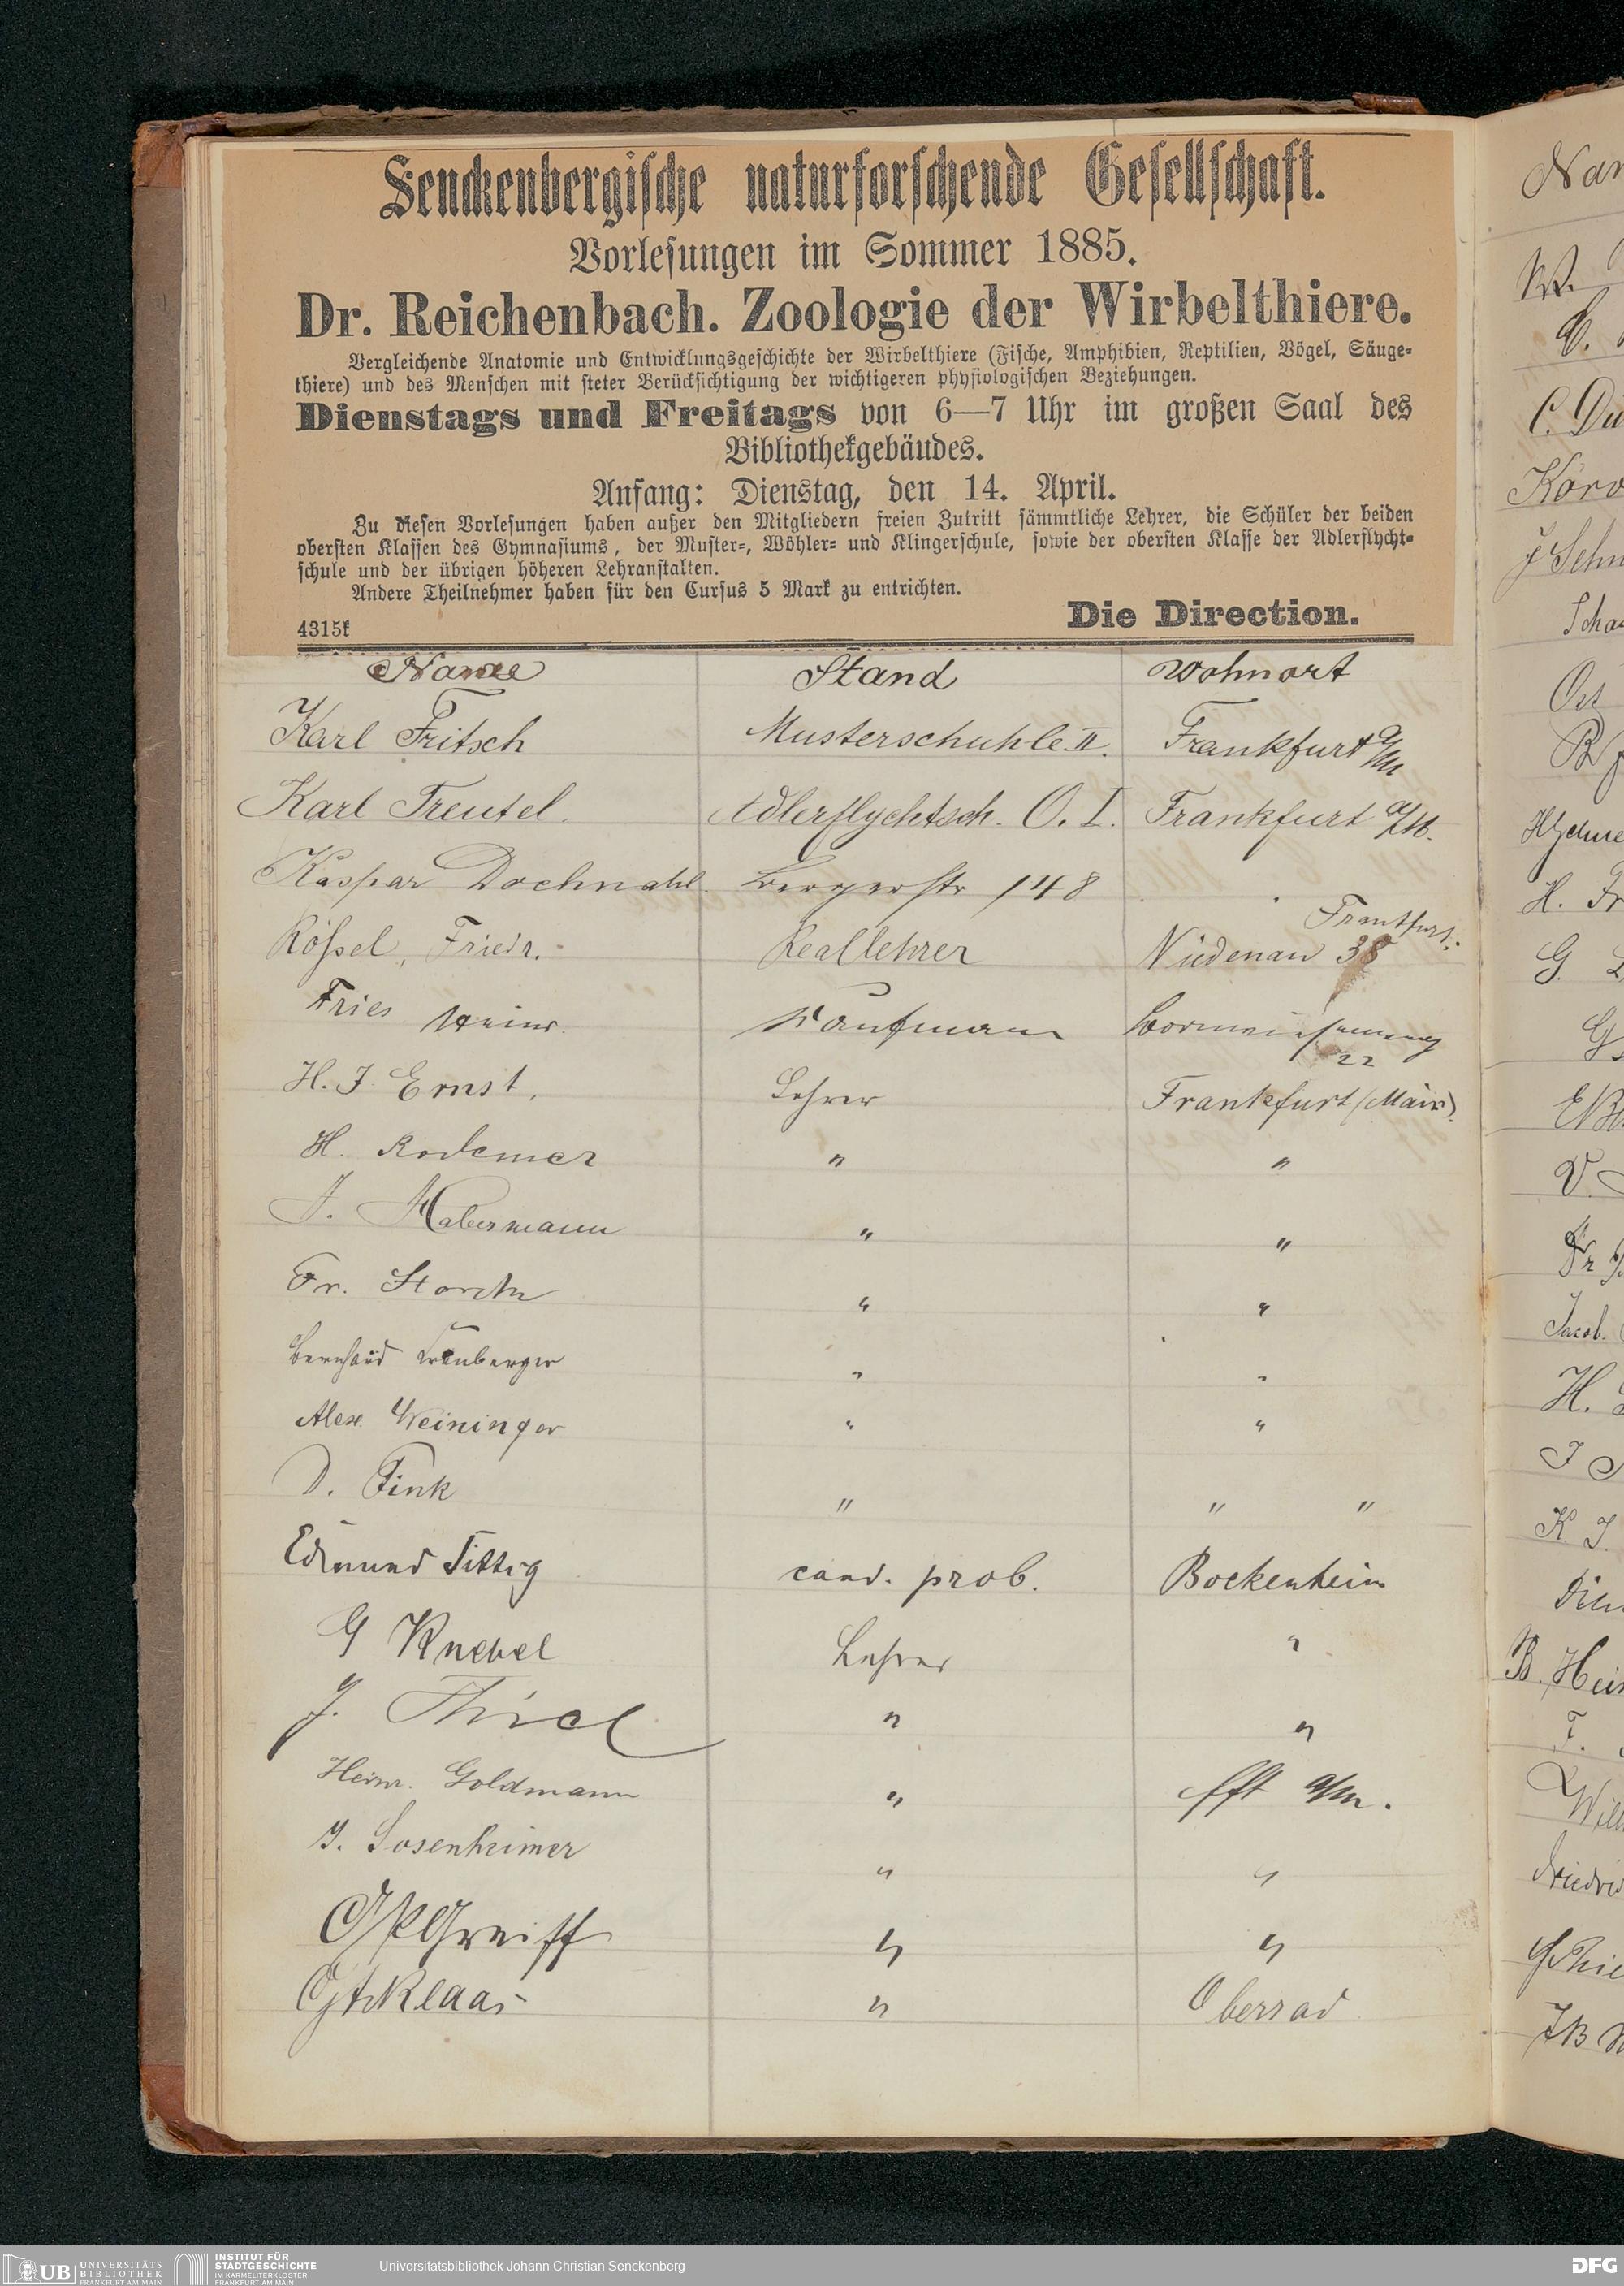 Senckenbergische naturforschende Gesellschaft.
Vorlesungen im Sommer 1885.
Dr. Reichenbach. Zoologie der Wirbelthiere.
Vergleichende Anatomie und Entwicklungsgeschichte der Wirbelthiere (Fische, Amphibien, Reptilien, Vögel, Säuge-
thiere) und des Menschen mit steter Berücksichtigung der wichtigeren physiologischen Beziehungen.
Dienstags und Freitags von 6—7 Uhr im großen Saal des
Bibliothekgebäudes.
Anfang: Dienstag, den 14. April.
Zu diesen Vorlesungen haben außer den Mitgliedern freien Zutritt sämmtliche Lehrer, die Schüler der beiden
obersten Klassen des Gymnasiums, der Muster-, Wöhler- und Klingerschule, sowie der obersten Klasse der Adlerflycht-
schule und der übrigen höheren Lehranstalten.
Andere Theilnehmer haben für den Cursus 5 Mark zu entrichten.
Die Direction.
4315k
Name Stand Wohnort
Karl Fritsch Musterschuhle II. Frankfurt a/M
Karl Treutel. Adlerflychtsch. O. I. Frankfurt a/M.
Kaspar Dochnahl. Bergerstr 148
Frankfurt.
Rössel, Friedr. Reallehrer Niedenau 38
Fries Heinr. Kaufmann
22
H. J. Ernst. Lehrer Frankfurt (Main).
H. Rodemer " "
J. Habermann " "
Fr. Storch " "
Bernhard " "
Alex. Weininger " "
D. Fink " " "
Edmund Sittig cand. prob. Bockenheim
G Knebel Lehrer "
J. Thiel " "
Heinr. Goldmann " Fft a/M.
J. Sosenheimer " "
Greiff " "
Klaas " Oberrad
Nar
C. Du
Jacob.
H.
B. Hei
UB UNIVERSITÄTS
BIBLIOTHEK
FRANKFURT AM MAIN
INSTITUT FÜR
STADTGESCHICHTE
IM KARMELITERKLOSTER
FRANKFURT AM MAIN
Universitätsbibliothek Johann Christian Senckenberg
DFG